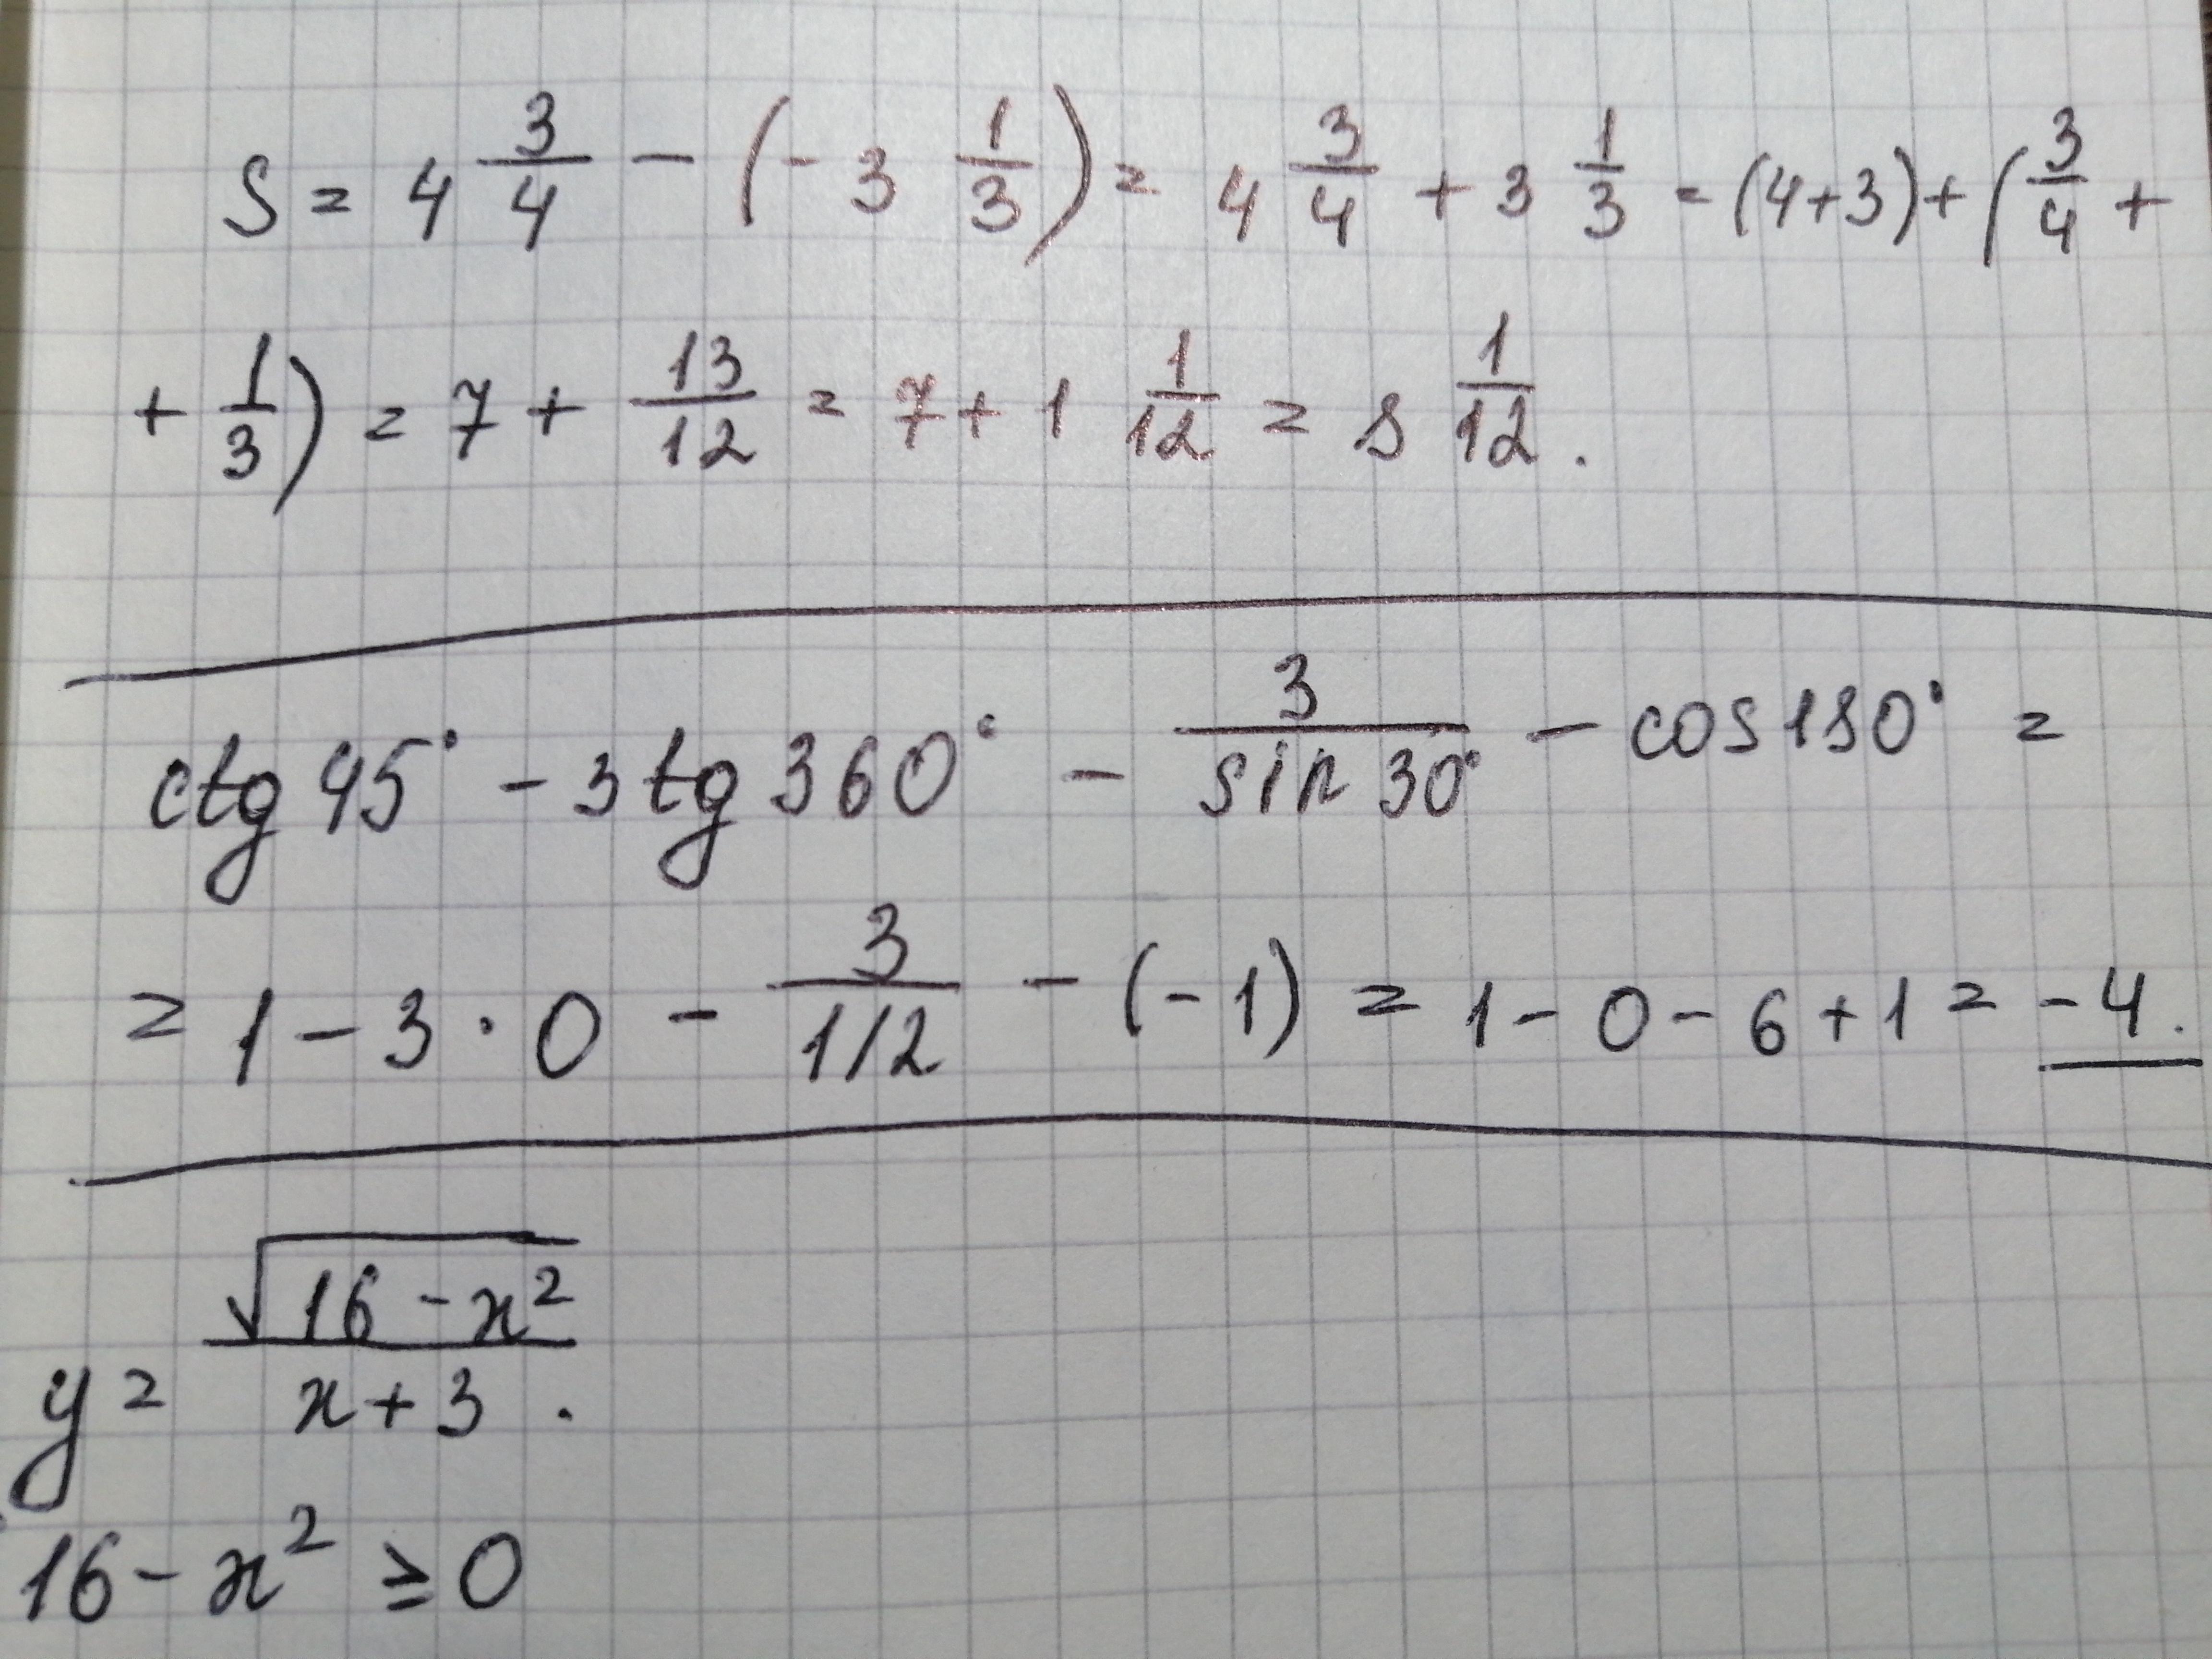 S = 4 3/4 - (-3 1/3) = 4 3/4 + 3 1/3 = (4+3) + (3/4 +
+ 1/3) = 7 + 13/12 = 7 + 1 1/12 = 8 1/12.
ctg 45° - 3 tg 360° - 3/sin 30° - cos 180° =
= 1 - 3 · 0 - 3/(1/2) - (-1) = 1 - 0 - 6 + 1 = -4.
y = √(16 - x²)/(x + 3).
16 - x² ≥ 0